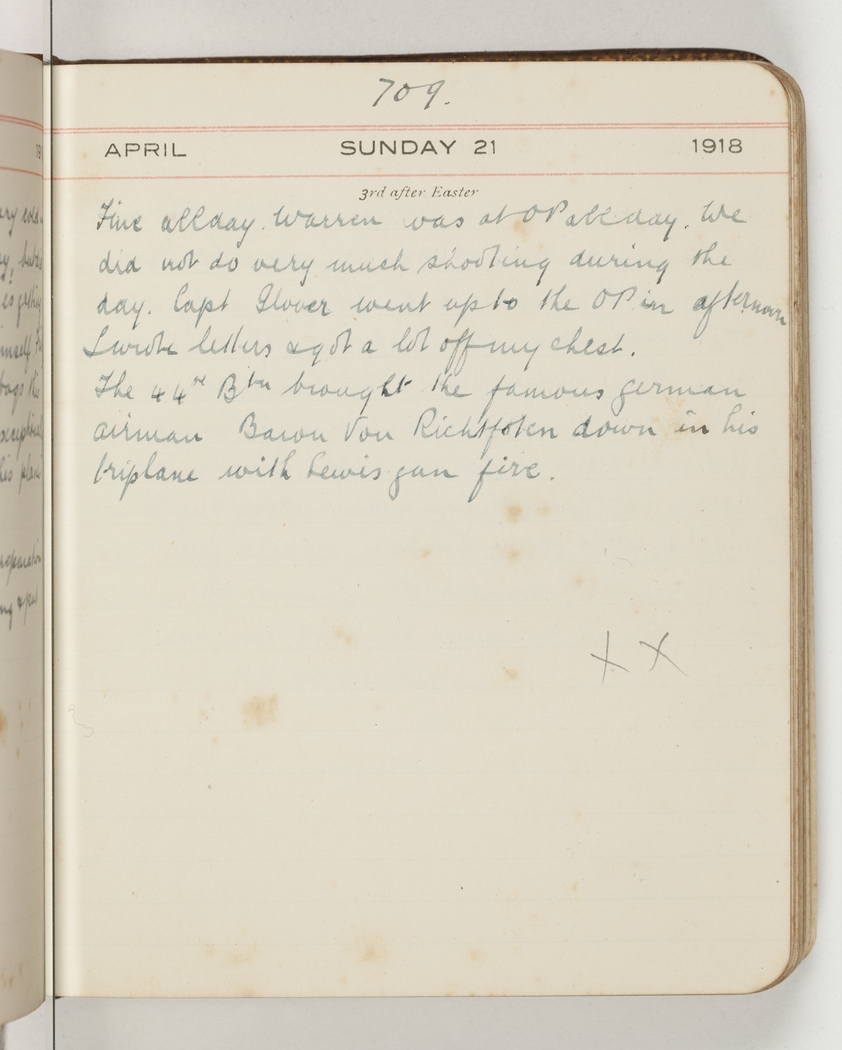 709.
APRIL SUNDAY 21 1918
3rd after Easter
Fine all day. Warren was at OP all day. We
did not do very much shooting during the
day. Capt Glover went up to the OP in afternoon
I wrote letters & got a lot off my chest.
The 44th Btn brought the famous german
airman Baron Von Richtfoten down in his
triplane with Lewis gun fire.
X X